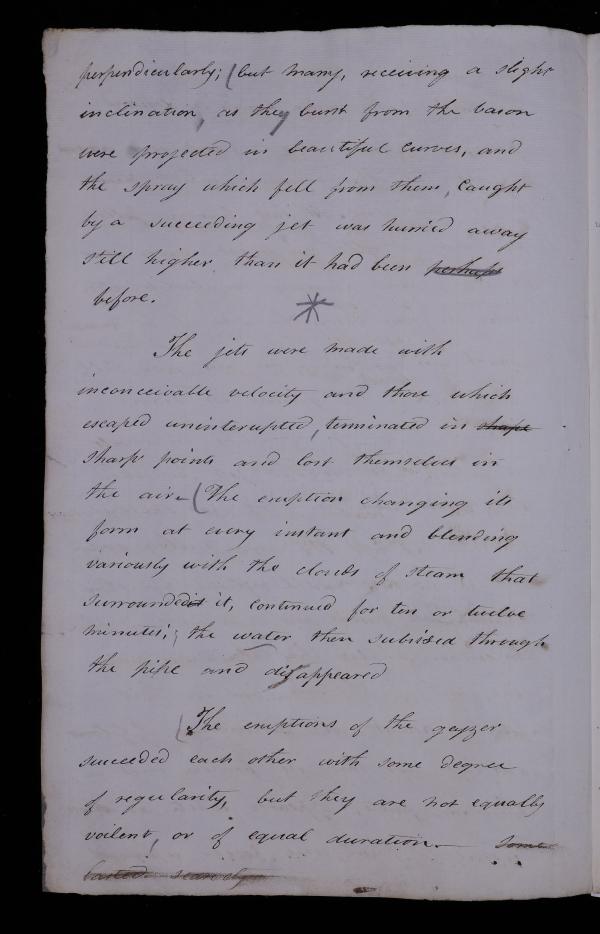 perpendicularly; (but many, receiving a slight
inclination, as they burst from the bason
were projected in beautiful curves, and
the spray which fell from them, caught
by a succeeding jet was hurried away
still higher than it had been perhaps
before.
*
The jets were made with
inconceivable velocity and those which
escaped uninterupted, terminated in shape
sharp points and lost themselves in
the air. (The eruption changing its
form at every instant and blending
variously with the clouds of steam that
surrounded it, continued for ten or twelve
minutes; the water then subsided through
the pipe and disappeared
(The eruptions of the geyzer
succeeded each other with some degree
of regularity, but they are not equally
voilent, or of equal duration. — Some
lasted scarcely